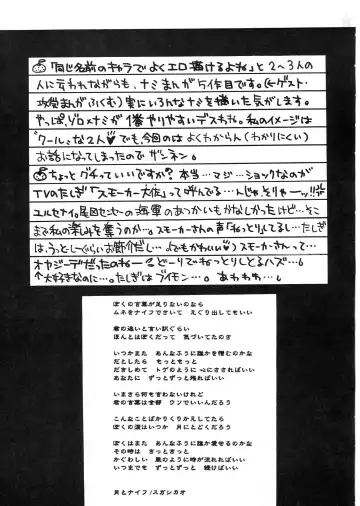 「同じ名前のキャラでよくエロ描けるよね」と2〜3人の
人に言われながらも、ナミまんが5作目です。(←ゲスト・
攻受まんがふくむ)実にいろんなナミを描いた気がします。
やっぱ、ゾロ×ナミが1番やりやすいデスわね。私のイメージは
“クール”な2人♥でも今回のはよくわからん(わかりにくい)
お話になってしまったのでザンネン。
ちょっとグチっていいですか?本当…マジ…ショックなのが
TVのたしぎ「スモーカー大佐」って呼んでる…んじゃそりゃーッ!!
海軍のあつかいもかなしかったけど…そこ
まで私の楽しみを奪うのか…。スモーカーさんの声「ねっとり」してるし…たしぎ
は、うっとーしぐらいお節介だし…。(でもかわいい♥)スモーカーさんって…
オヤジーデだったのねー
大好きなのに…。たしぎはブイモン…。あわわわ…。
ぼくの言葉が足りないのなら
ムネをナイフでさいて えぐり出してもいい
君の迷いと言い訳ぐらい
ほんとはぼくだって 気づいてたのさ
いつかまた あんなふうに誰かを憎むのかな
だとしたら もっともっと
だきしめて トゲのように心にささればいい
あなたに ずっとずっと残ればいい
いまさら何を言わないけれど
君の言葉は全部 ウンでいいんだろう
こんなことばかりくりかえしてたら
ぼくの涙はいつか 月にとどくだろう
ぼくはまた あんなふうに誰か愛せるのかな
その時は きっときっと
かぐわしい 風のように時が流ればいい
いつまでも ずっとずっと 続けばいい
月とナイフ/スガシカオ